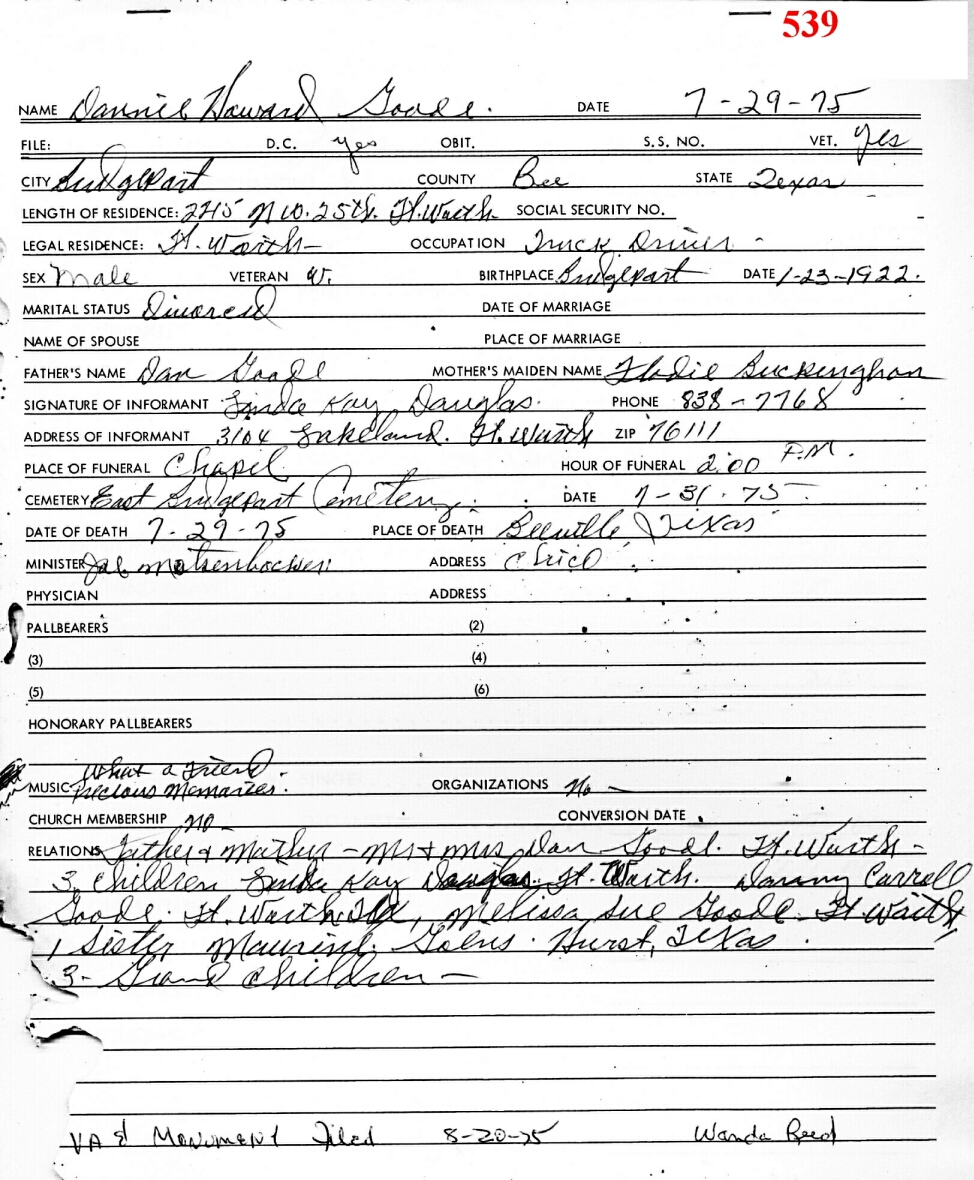 539
NAME Dannie Howard Goode. DATE 7-29-75
FILE: D.C. yes OBIT. S.S. NO. VET. yes
CITY Bridgeport COUNTY Bee STATE Texas
LENGTH OF RESIDENCE: 2215 N W. 25th. Ft. Worth SOCIAL SECURITY NO.
LEGAL RESIDENCE: Ft. Worth - OCCUPATION Truck Driver -
SEX Male VETERAN W. BIRTHPLACE Bridgeport DATE 1-23-1922.
MARITAL STATUS Divorced DATE OF MARRIAGE
NAME OF SPOUSE PLACE OF MARRIAGE
FATHER'S NAME Dan Goode MOTHER'S MAIDEN NAME Buckinghan
SIGNATURE OF INFORMANT Linda Kay Douglas. PHONE 838-7768
ADDRESS OF INFORMANT 3104 Lakeland. Ft. Worth ZIP 76111
PLACE OF FUNERAL Chapel HOUR OF FUNERAL 2:00 P.M.
CEMETERY East Bridgeport Cemetery. DATE 7-31-75
DATE OF DEATH 7-29-75 PLACE OF DEATH Beeville, Texas
MINISTER ADDRESS Chico
PHYSICIAN ADDRESS
PALLBEARERS (2)
(3) (4)
(5) (6)
HONORARY PALLBEARERS
What a Friend.
MUSIC Precious Memories. ORGANIZATIONS No -
CHURCH MEMBERSHIP no - CONVERSION DATE
RELATIONS Father & Mother - Mr & Mrs Dan Goode. Ft. Worth -
3 Children Linda Kay Douglas. Ft. Worth. Danny Carroll
Goode. Ft. Worth, Melissa Sue Goode - Ft Worth,
1 Sister Maurine Goens. Hurst, Texas.
3 - Grand Children -
VA & Monument Filed 8-20-75 Wanda Reed